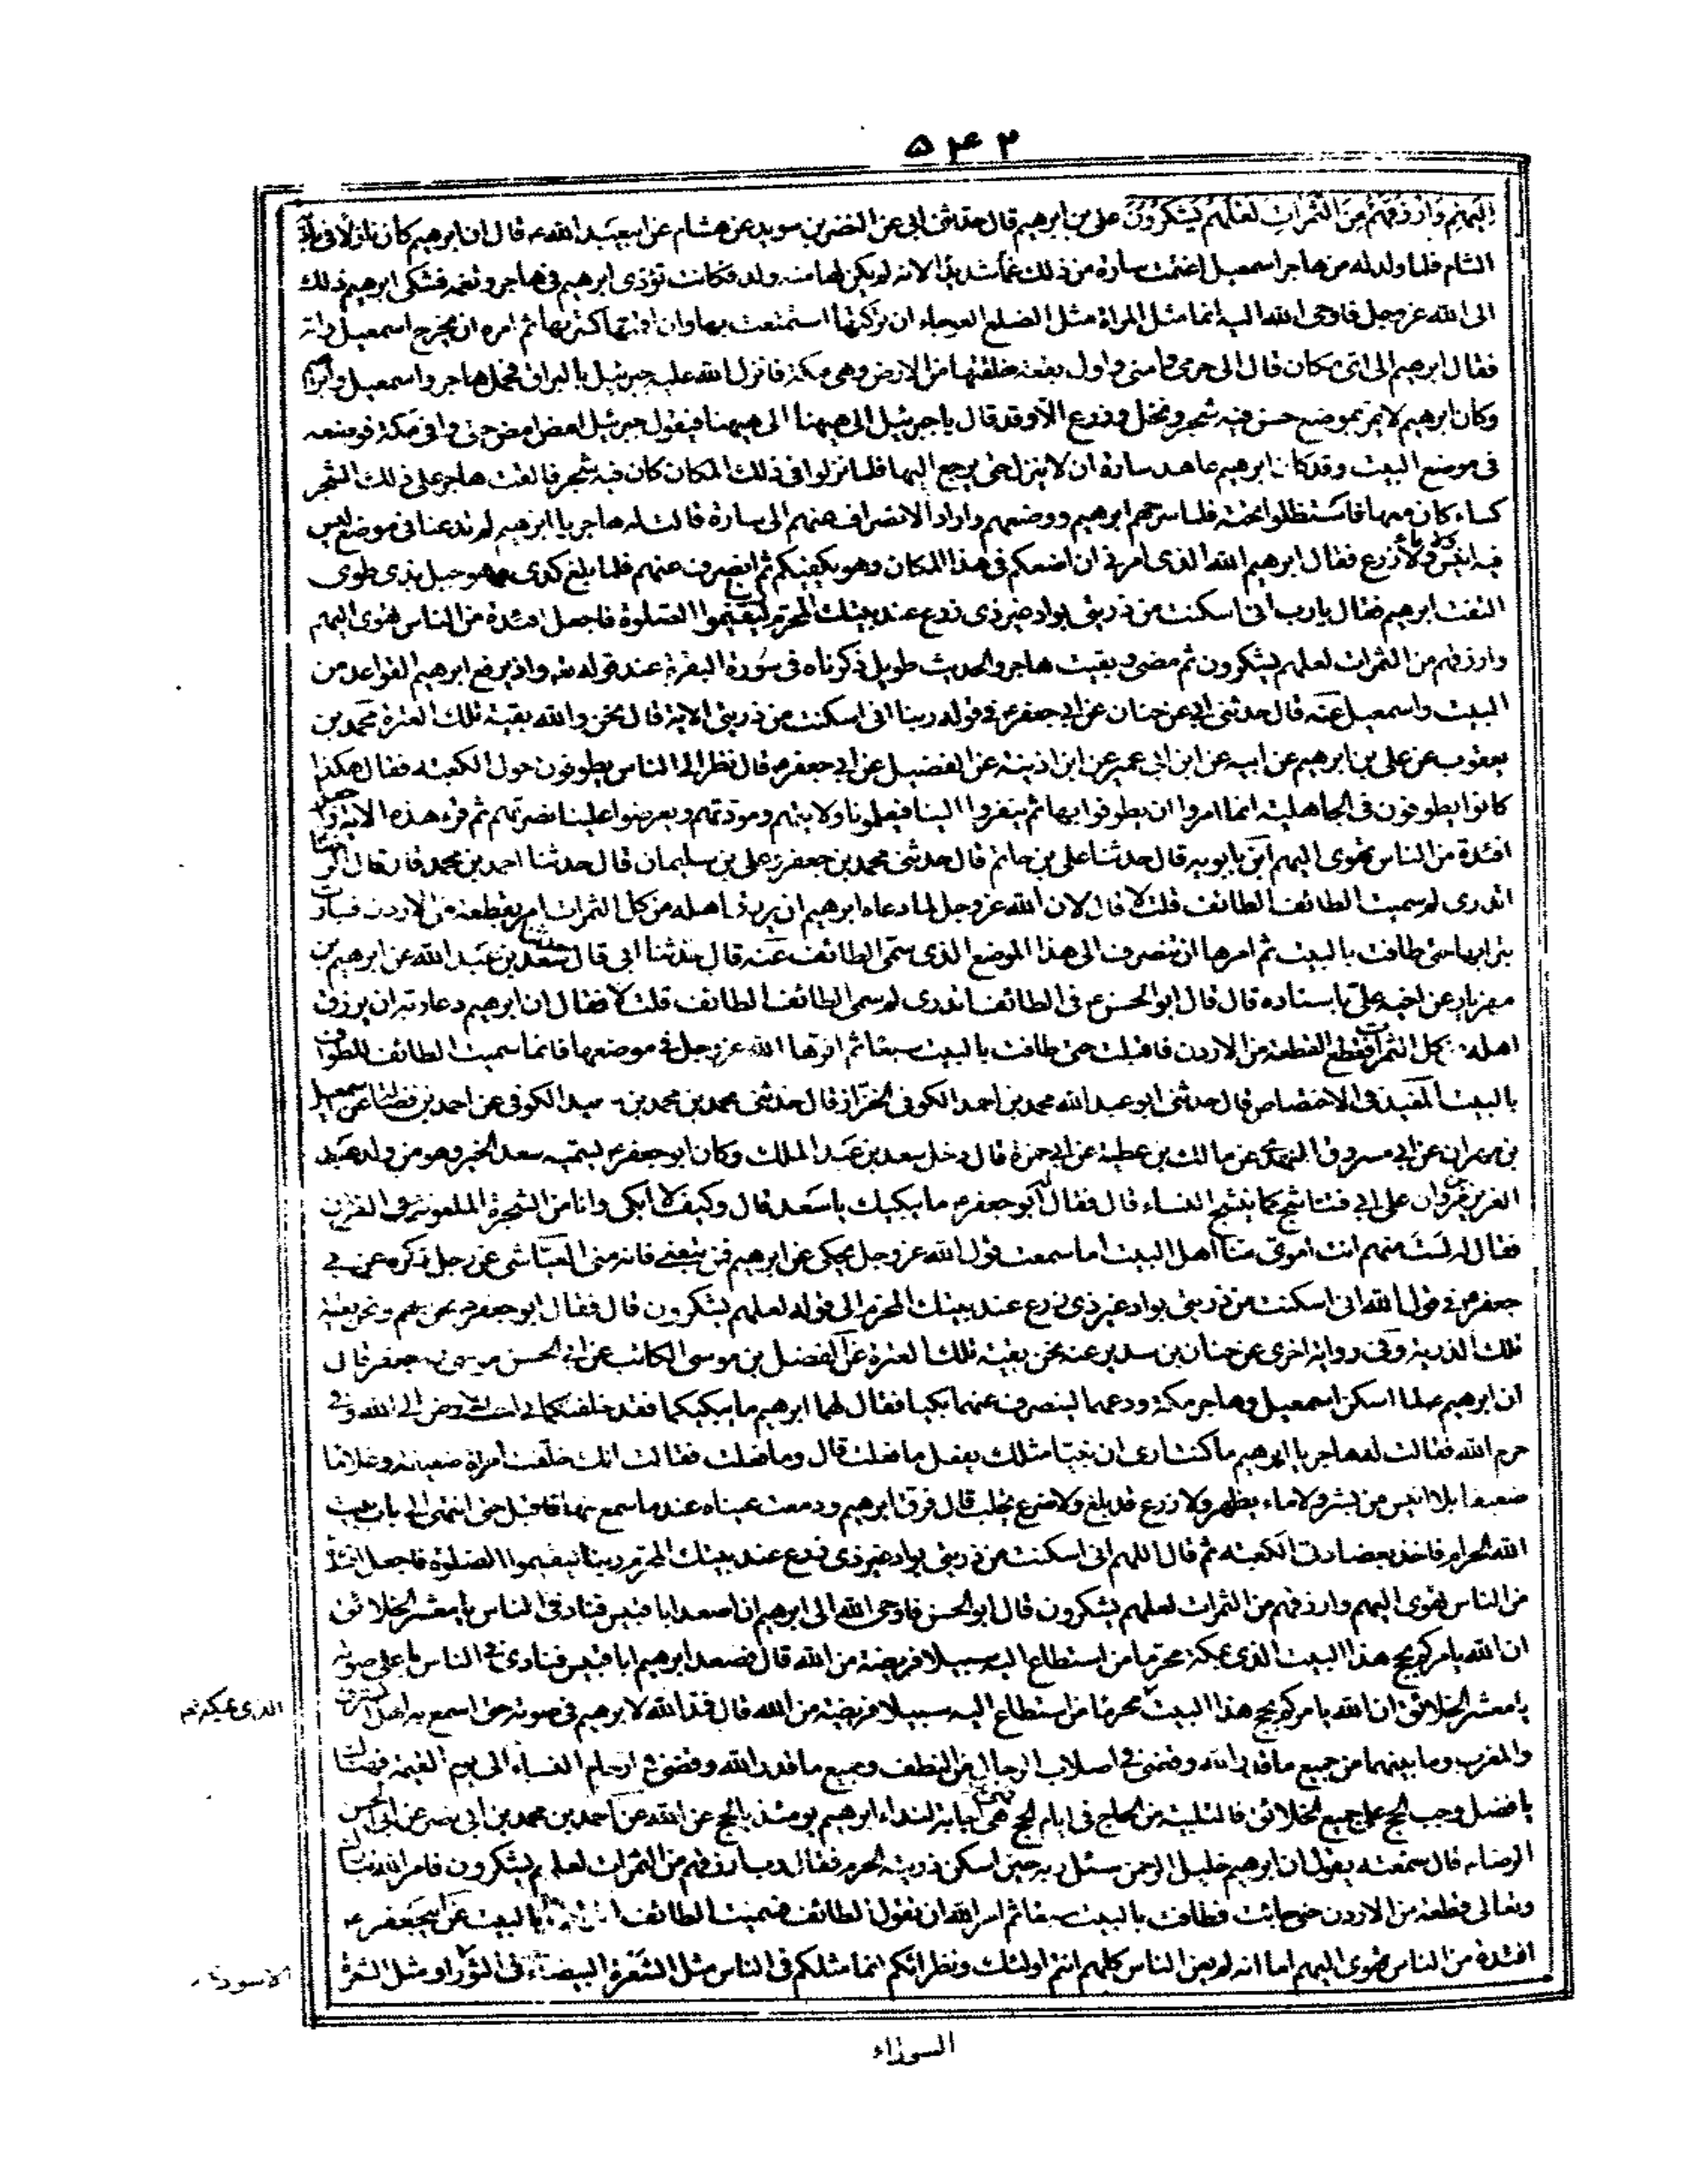 ٥٤٢
اليهم وارزقهم من الثمرات لعلهم يشكرون على بن ابرهيم قال حدثنى ابى عن النضر بن سويد عن هشام عن ابيعبد الله ع قال ان ابرهيم كان نازلا فى بادية
الشام فلما ولد له من هاجر اسمعيل اغتمت سارة من ذلك غما شديدا لانه لم يكن لها منه ولد فكانت تؤذى ابرهيم فى هاجر وتغمه فشكى ابرهيم ذلك
الى الله عز وجل فاوحى الله اليه انما مثل المراة مثل الضلع العوجاء ان تركتها استمتعت بها وان اقمتها كسرتها ثم امره ان يخرج اسمعيل وامه
فقال ابرهيم الى اى مكان قال الى حرمى وامنى واول بقعة خلقتها من الارض وهى مكة فانزل الله عليه جبرئيل بالبراق فحمل هاجر واسمعيل وابرهيم
وكان ابرهيم لا يمر بموضع حسن فيه شجر ونخل وزرع الا وقد قال يا جبرئيل الى هيهنا الى هيهنا فيقول جبرئيل امض امض حتى وافى مكة فوضعه
فى موضع البيت وقد كان ابرهيم عاهد سارة ان لا ينزل حتى يرجع اليها فلما نزلوا فى ذلك المكان كان فيه شجر فالقت هاجر على ذلك الشجر
كساء كان معها فاستظلوا تحته فلما سرحهم ابرهيم ووضعهم واراد الانصراف عنهم الى سارة قالت له هاجر يا ابرهيم لم تدعنا فى موضع ليس
فيه انيس ولا ماء ولا زرع فقال ابرهيم الله الذى امرنى ان اضعكم فى هذا المكان وهو يكفيكم ثم انصرف عنهم فلما بلغ كدى وهو جبل بذى طوى
التفت ابرهيم فقال يا رب انى اسكنت من ذريتى بواد غير ذى زرع عند بيتك المحرم ليقيموا الصلوة فاجعل افئدة من الناس تهوى اليهم
وارزقهم من الثمرات لعلهم يشكرون ثم مضى وبقيت هاجر والحديث طويل ذكرناه فى سورة البقرة عند قوله تع واذ يرفع ابرهيم القواعد من
البيت واسمعيل عنه قال حدثنى ابى عن حنان عن ابى جعفر ع فى قوله ربنا انى اسكنت من ذريتى الاية قال نحن والله بقية تلك العترة محمد بن
يعقوب عن على بن ابرهيم عن ابيه عن ابن ابى عمير عن ابن اذينة عن الفضيل عن ابى جعفر ع قال نظر الى الناس يطوفون حول الكعبة فقال هكذا
كانوا يطوفون فى الجاهلية انما امروا ان يطوفوا بها ثم ينفروا الينا فيعلمونا ولايتهم ومودتهم ويعرضوا علينا نصرتهم ثم قرء هذه الاية واجعل
افئدة من الناس تهوى اليهم ابن بابويه قال حدثنا على بن حاتم قال حدثنى محمد بن جعفر وعلى بن سليمان قال حدثنا احمد بن محمد قال قال الرضا
اتدرى لم سميت الطائف الطائف قلت لا قال لان الله عز وجل لما دعاه ابرهيم ان يرزق اهله من كل الثمرات امر بقطعة من الاردن فسارت
بثمارها حتى طافت بالبيت ثم امرها ان تنصرف الى هذا الموضع الذى سمى الطائف عنه قال حدثنا ابى قال حدثنا سعد بن عبد الله عن ابرهيم بن
مهزيار عن اخيه على باسناده قال قال ابو الحسن ع فى الطائف اتدرى لم سمى الطائف الطائف قلت لا فقال ان ابرهيم دعا ربه ان يرزق
اهله من كل الثمرات فقطع القطعة من الاردن فاقبلت حتى طافت بالبيت سبعا ثم اقرها الله عز وجل فى موضعها فانما سميت الطائف للطواف
بالبيت المفيد فى الاختصاص قال حدثنى ابو عبد الله محمد بن احمد الكوفى الخزاز قال حدثنى محمد بن محمد بن سعيد الكوفى عن احمد بن فضال عن اسمعيل
بن مهران عن ابى مسروق النهدى عن مالك بن عطية عن ابى حمزة قال دخل سعد بن عبد الملك وكان ابو جعفر ع يسميه سعد الخير وهو من ولد عبد
العزيز بن مروان على ابى فنشج كما ينشج النساء قال فقال له ابو جعفر ع ما يبكيك يا سعد قال وكيف لا ابكى وانا من الشجرة الملعونة فى القران
فقال له لست منهم انت اموى منا اهل البيت اما سمعت قول الله عز وجل يحكى عن ابرهيم فمن تبعنى فانه منى العياشى عن رجل ذكره عن ابى
جعفر ع فى قول الله انى اسكنت من ذريتى بواد غير ذى زرع عند بيتك المحرم الى قوله لعلهم يشكرون قال فقال ابو جعفر ع نحن هم ونحن بقية
تلك الذرية وفى رواية اخرى عن حنان بن سدير عنه نحن بقية تلك العترة عن الفضل بن موسى الكاتب عن ابى الحسن موسى بن جعفر قال
ان ابرهيم ع لما اسكن اسمعيل وهاجر مكة ودعهما لينصرف عنهما بكيا فقال لهما ابرهيم ما يبكيكما فقد خلفتكما فى احب الارض الى الله وفى
حرم الله فقالت له هاجر يا ابرهيم ما كنت ارى ان نبيا مثلك يفعل ما فعلت قال وما فعلت فقالت انك خلفت امراة ضعيفة وغلاما
ضعيفا بلا انيس من بشر ولا ماء يظهر ولا زرع قد بلغ ولا ضرع يحلب قال فرق ابرهيم ودمعت عيناه عند ما سمع منها فاقبل حتى انتهى الى باب بيت
الله الحرام فاخذ بعضادتى الكعبة ثم قال اللهم انى اسكنت من ذريتى بواد غير ذى زرع عند بيتك المحرم ربنا ليقيموا الصلوة فاجعل افئدة
من الناس تهوى اليهم وارزقهم من الثمرات لعلهم يشكرون قال ابو الحسن فاوحى الله الى ابرهيم ان اصعد ابا قبيس فناد فى الناس يا معشر الخلائق
ان الله يامركم بحج هذا البيت الذى بمكة محرما من استطاع اليه سبيلا فريضة من الله قال فصعد ابرهيم ابا قبيس فنادى فى الناس باعلى صوته
يا معشر الخلائق ان الله يامركم بحج هذا البيت محرما من استطاع اليه سبيلا فريضة من الله قال فمد الله لابرهيم فى صوته حتى اسمع به اهل المشرق
الذى بمكة
والمغرب وما بينهما من جميع ما قدر الله وقضى فى اصلاب الرجال من النطف وجميع ما قدر الله وقضى فى ارحام النساء الى يوم القيمة فهناك
يا فضل وجب الحج على جميع الخلائق فالتلبية من الحاج فى ايام الحج هى اجابة لنداء ابرهيم يومئذ بالحج عن الله عن احمد بن محمد بن ابى نصر عن ابى الحسن
الرضا ع قال سمعته يقول ان ابرهيم خليل الرحمن سئل ربه حين اسكن ذريته الحرم فقال رب ارزقهم من الثمرات لعلهم يشكرون فامر الله تبارك
وتعالى قطعة من الاردن حتى جائت فطافت بالبيت سبعا ثم امر الله ان تقول الطائف فسميت الطائف بالبيت عن ابيجعفر ع
افئدة من الناس تهوى اليهم اما انه لم يعن الناس كلهم انتم اولئك ونظرائكم انما مثلكم فى الناس مثل الشعرة البيضاء فى الثور او مثل الشعرة
الاسود
السوداء